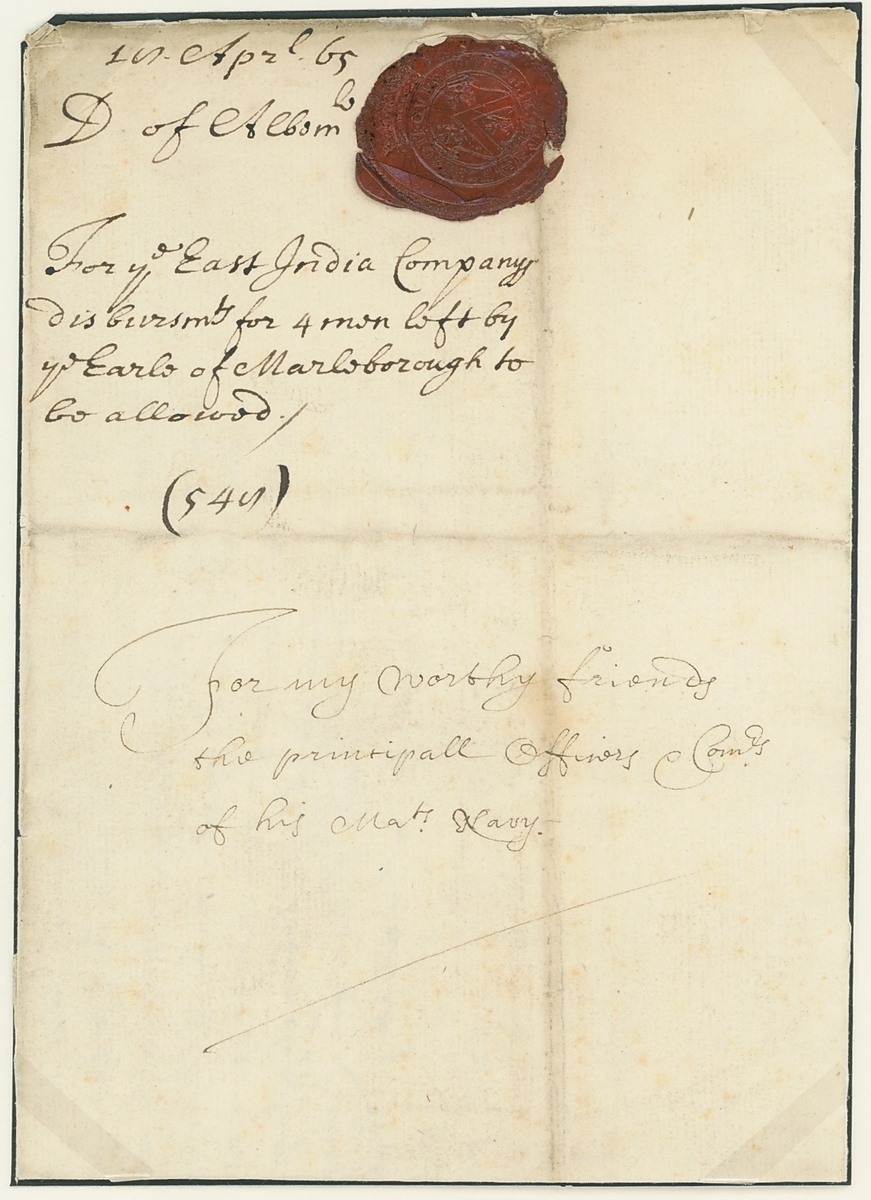 Aprl. 65
D of Albemle
For ye East India Companys
disbursmts for 4 men left by
ye Earle of Marleborough to
be allowed./
For my worthy friends
the principall Officers & Comrs
of his Mats Navy.